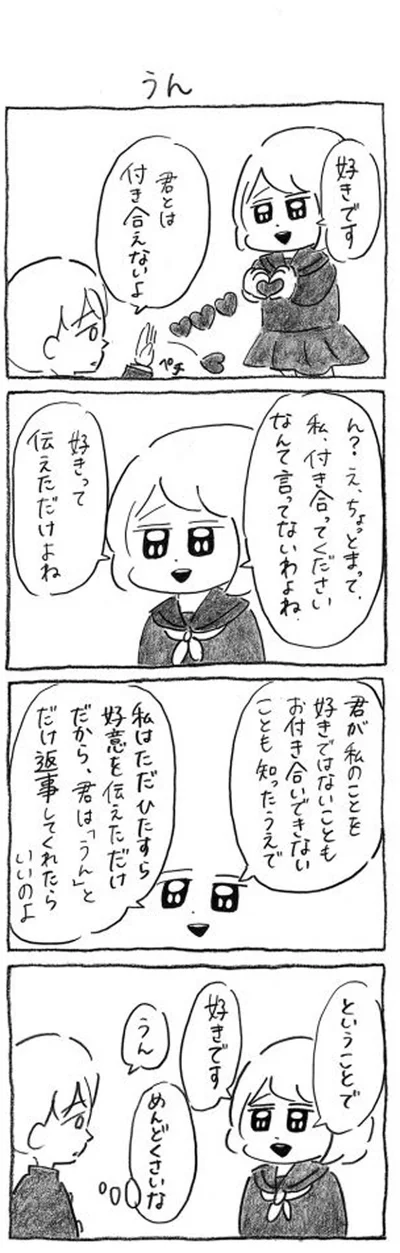 うん
好きです
君とは
付き合えないよ
ペチ
ん？え、ちょっとまって、
私、付き合ってください
なんて言ってないわよね。
好きって
伝えただけよね
君が私のことを
好きではないことも
お付き合いできない
ことも知ったうえで
私はただひたすら
好意を伝えただけ
だから、君は「うん」と
だけ返事してくれたら
いいのよ
ということで
好きです
うん
めんどくさいな